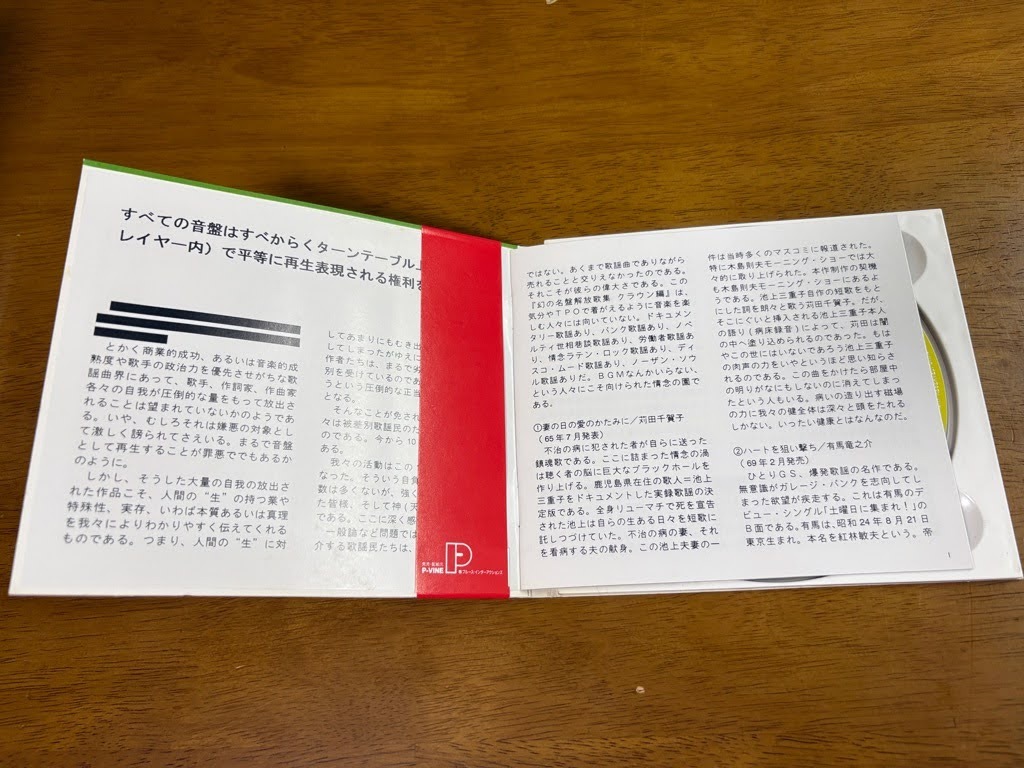 すべての音盤はすべからくターンテーブル
レイヤー内）で平等に再生表現される権利を
とかく商業的成功、あるいは音楽的成
熟度や歌手の政治力を優先させがちな歌
謡曲界にあって、歌手、作詞家、作曲家
各々の自我が圧倒的な量をもって放出さ
れることは望まれていないかのようであ
る。いや、むしろそれは嫌悪の対象とし
て激しく謗られてさえいる。まるで音盤
として再生することが罪悪ででもあるか
のように。
しかし、そうした大量の自我の放出さ
れた作品こそ、人間の“生”の持つ業や
特殊性、実存、いわば本質あるいは真理
を我々によりわかりやすく伝えてくれる
ものである。つまり、人間の“生”に対
してあまりにもむき出
ししてしまったがゆえに
作者たちは、まるで劣
別を受けているのであ
うという圧倒的な正当
となる。
そんなことが免され
々は被差別歌謡民のた
のである。今から10
ある。
我々の活動はこの
なった。そういう自負
数は多くないが、強く
た皆様、そして神(天
である。ここに深く感
一般論など問題では
介する歌謡民たちは、
P-VINE
ブルース・インターアクションズ
ではない。あくまで歌謡曲でありながら
売れることと交りえなかったのである。
それこそが彼らの偉大さである。この
『幻の名盤解放歌集 クラウン編』は、
気分やTPOで着がえるように音楽を楽
しむ人々には向いていない。ドキュメン
タリー歌謡あり、パンク歌謡あり、ノベ
ルティ世相巷談歌謡あり、労働者歌謡あ
り、情念ラテン・ロック歌謡あり、ディ
スコ・ムード歌謡あり、ノーザン・ソウ
ル歌謡ありだ。BGMなんかいらない、
という人々にこそ向けられた情念の園で
ある。
①妻の日の愛のかたみに／苅田千賀子
（65年7月発表）
不治の病に犯された者が自らに送った
鎮魂歌である。ここに詰まった情念の渦
は聴く者の脳に巨大なブラックホールを
作り上げる。鹿児島県在住の歌人＝池上
三重子をドキュメントした実録歌謡の決
定版である。全身リューマチで死を宣告
された池上は自らの生ある日々を短歌に
託しつづけていた。不治の病の妻、それ
を看病する夫の献身。この池上夫妻の一
件は当時多くのマスコミに報道された。
特に木島則夫モーニング・ショーでは大
々的に取り上げられた。本作制作の契機
も木島則夫モーニング・ショーにあるよ
うである。池上三重子自作の短歌をもと
にした詞を朗々と歌う苅田千賀子。だが、
そこにぐいと挿入される池上三重子本人
の語り(病床録音)によって、苅田は闇
の中へ塗り込められるのであった。もは
やこの世にはいないであろう池上三重子
の肉声の力をいやというほど思い知らさ
れるのである。この曲をかけたら部屋中
の明りがなにもしないのに消えてしまっ
たという人もいる。病いの造り出す磁場
の力に我々の健全体は深々と頭をたれる
しかない。いったい健康とはなんなのだ。
②ハートを狙い撃ち／有馬竜之介
（69年2月発売）
ひとりGS、爆発歌謡の名作である。
無意識がガレージ・パンクを志向してし
まった欲望が疾走する。これは有馬のデ
ビュー・シングル「土曜日に集まれ！」の
B面である。有馬は、昭和24年8月21日
東京生まれ。本名を紅林敏夫という。帝
1